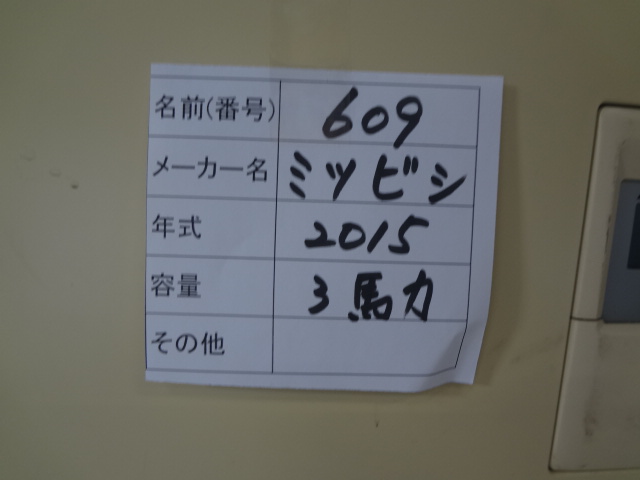 名前(番号) 609
メーカー名 ミツビシ
年式 2015
容量 3馬力
その他